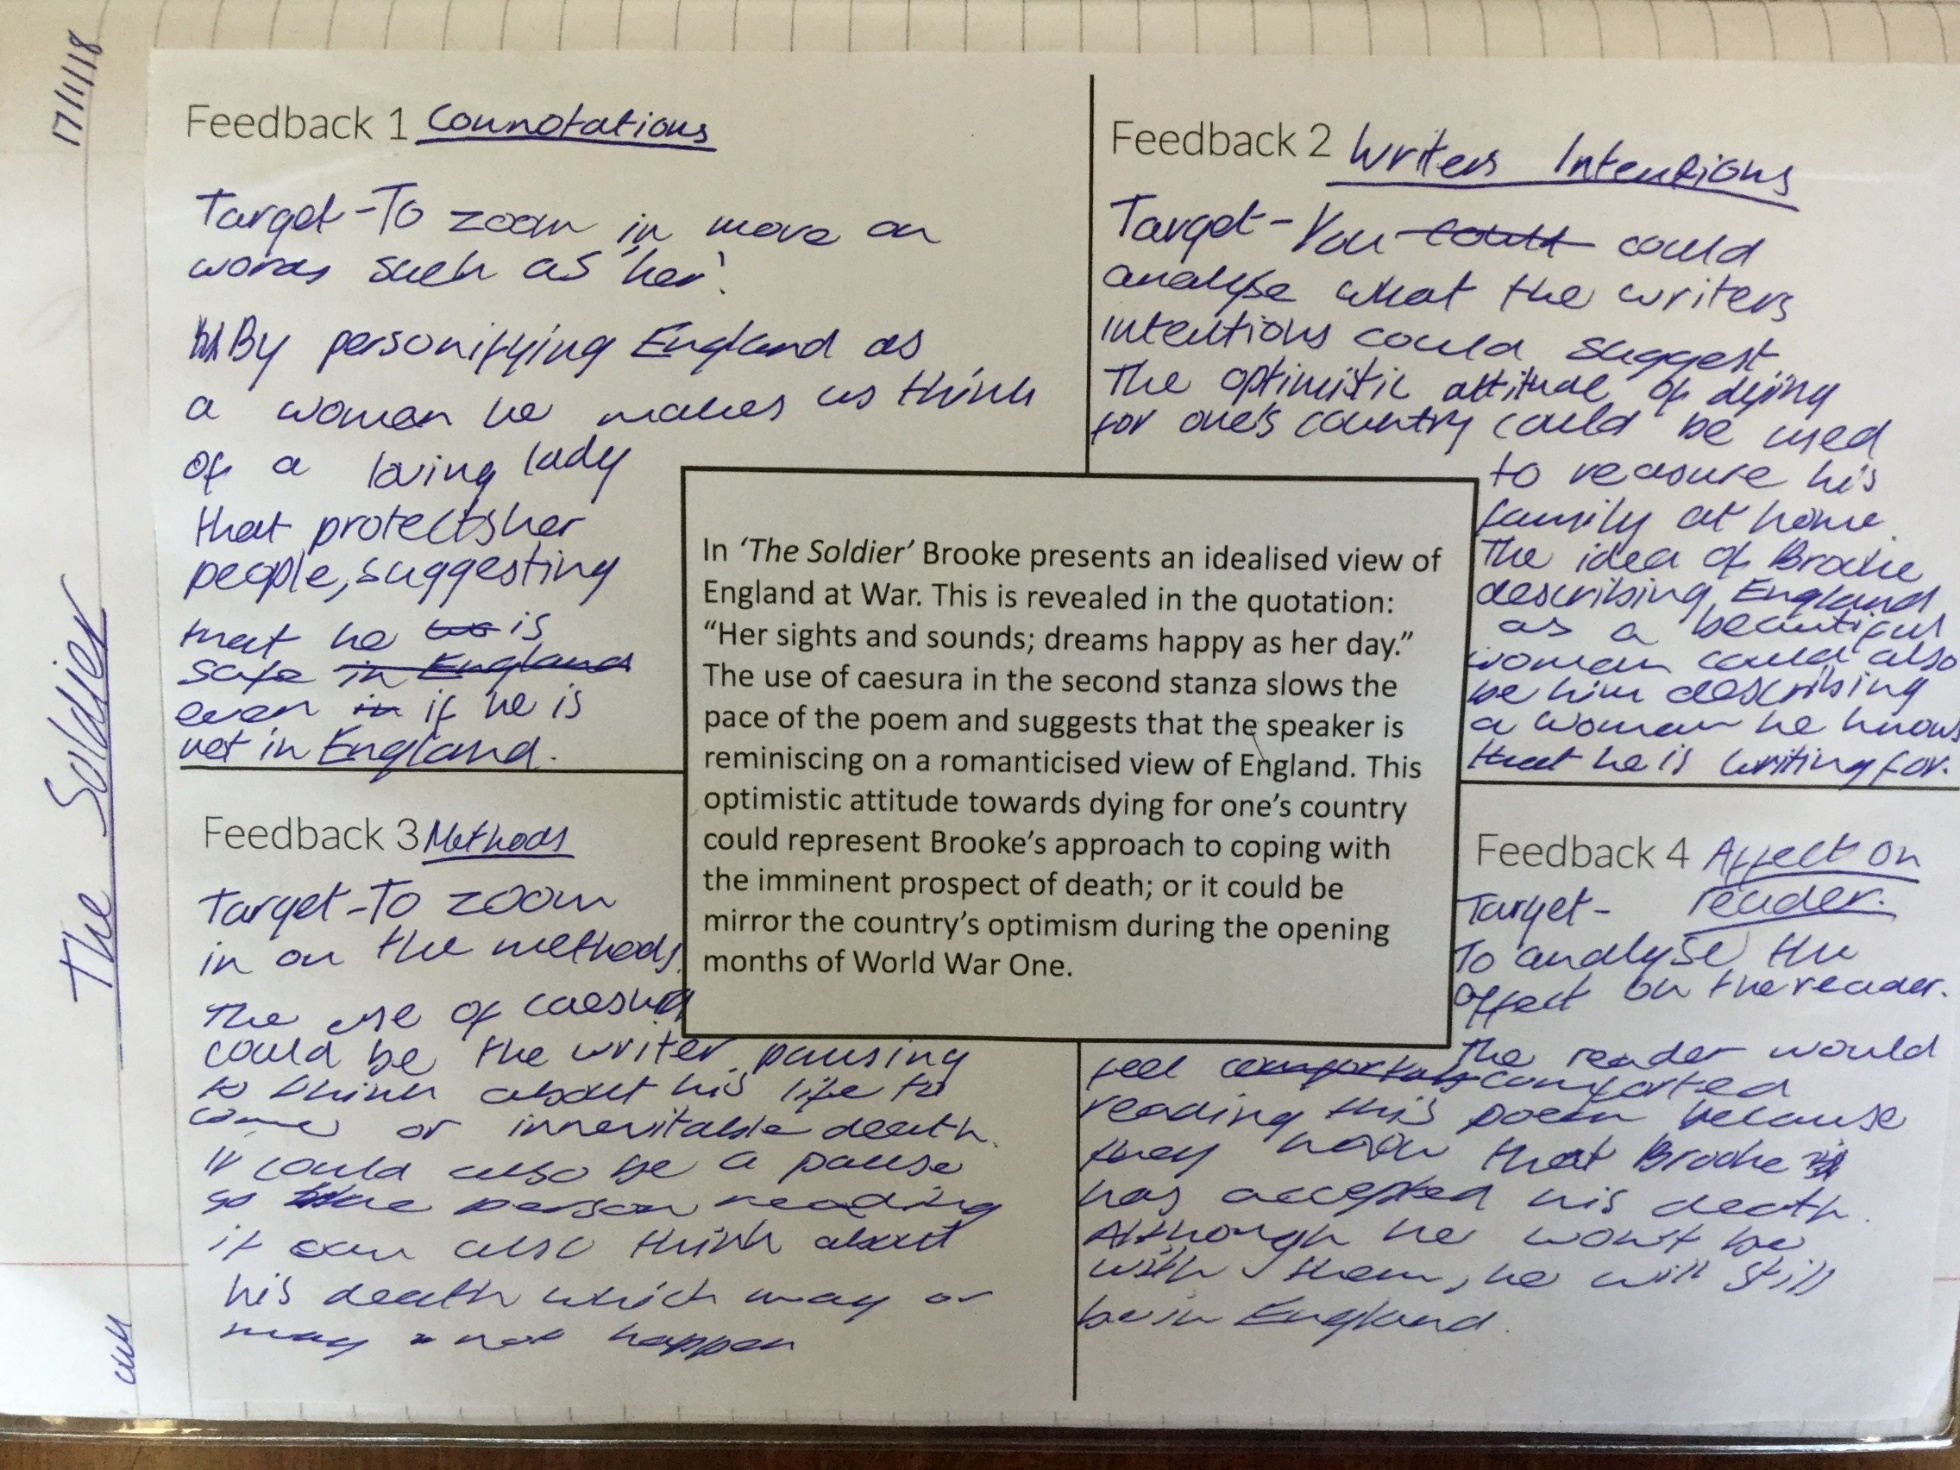 17/1/18
The Soldier
CWM
Feedback 1 Connotations
Target-To zoom in more on
words such as 'her'.
By personifying England as
a woman he makes us think
of a loving lady
that protects her
people, suggesting
that he is
safe in England
even in if he is
not in England.
Feedback 2 Writers Intentions
Target- You could could
analyse what the writers
intentions could suggest
The optimistic attitude of dying
for one's country could be used
to reasure his
family at home.
The idea of Brooke
describing England
as a beautiful
woman could also
be him describing
a woman he knows
that he is writing for.
In ‘The Soldier’ Brooke presents an idealised view of
England at War. This is revealed in the quotation:
“Her sights and sounds; dreams happy as her day.”
The use of caesura in the second stanza slows the
pace of the poem and suggests that the speaker is
reminiscing on a romanticised view of England. This
optimistic attitude towards dying for one’s country
could represent Brooke’s approach to coping with
the imminent prospect of death; or it could be
mirror the country’s optimism during the opening
months of World War One.
Feedback 3 Methods
Target-To zoom
in on the methods.
The use of caesura
could be the writer pausing
to think about his life to
come or innevitable death.
It could also be a pause
so the person reading
it can also think about
his death which may or
may not happen
Feedback 4 Affect on
reader.
Target-
To analyse the
affect on the reader.
The reader would
feel comforted
reading this poem because
they know that Brooke
has accepted his death.
Although he won't be
with them, he will still
be in England.